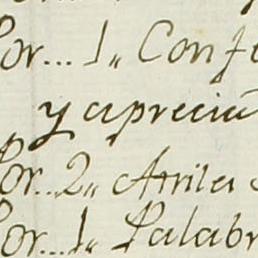 Por... 1,, Conf
y apreciu
Por... 2,, Atrila
Por... 1,, Palabr